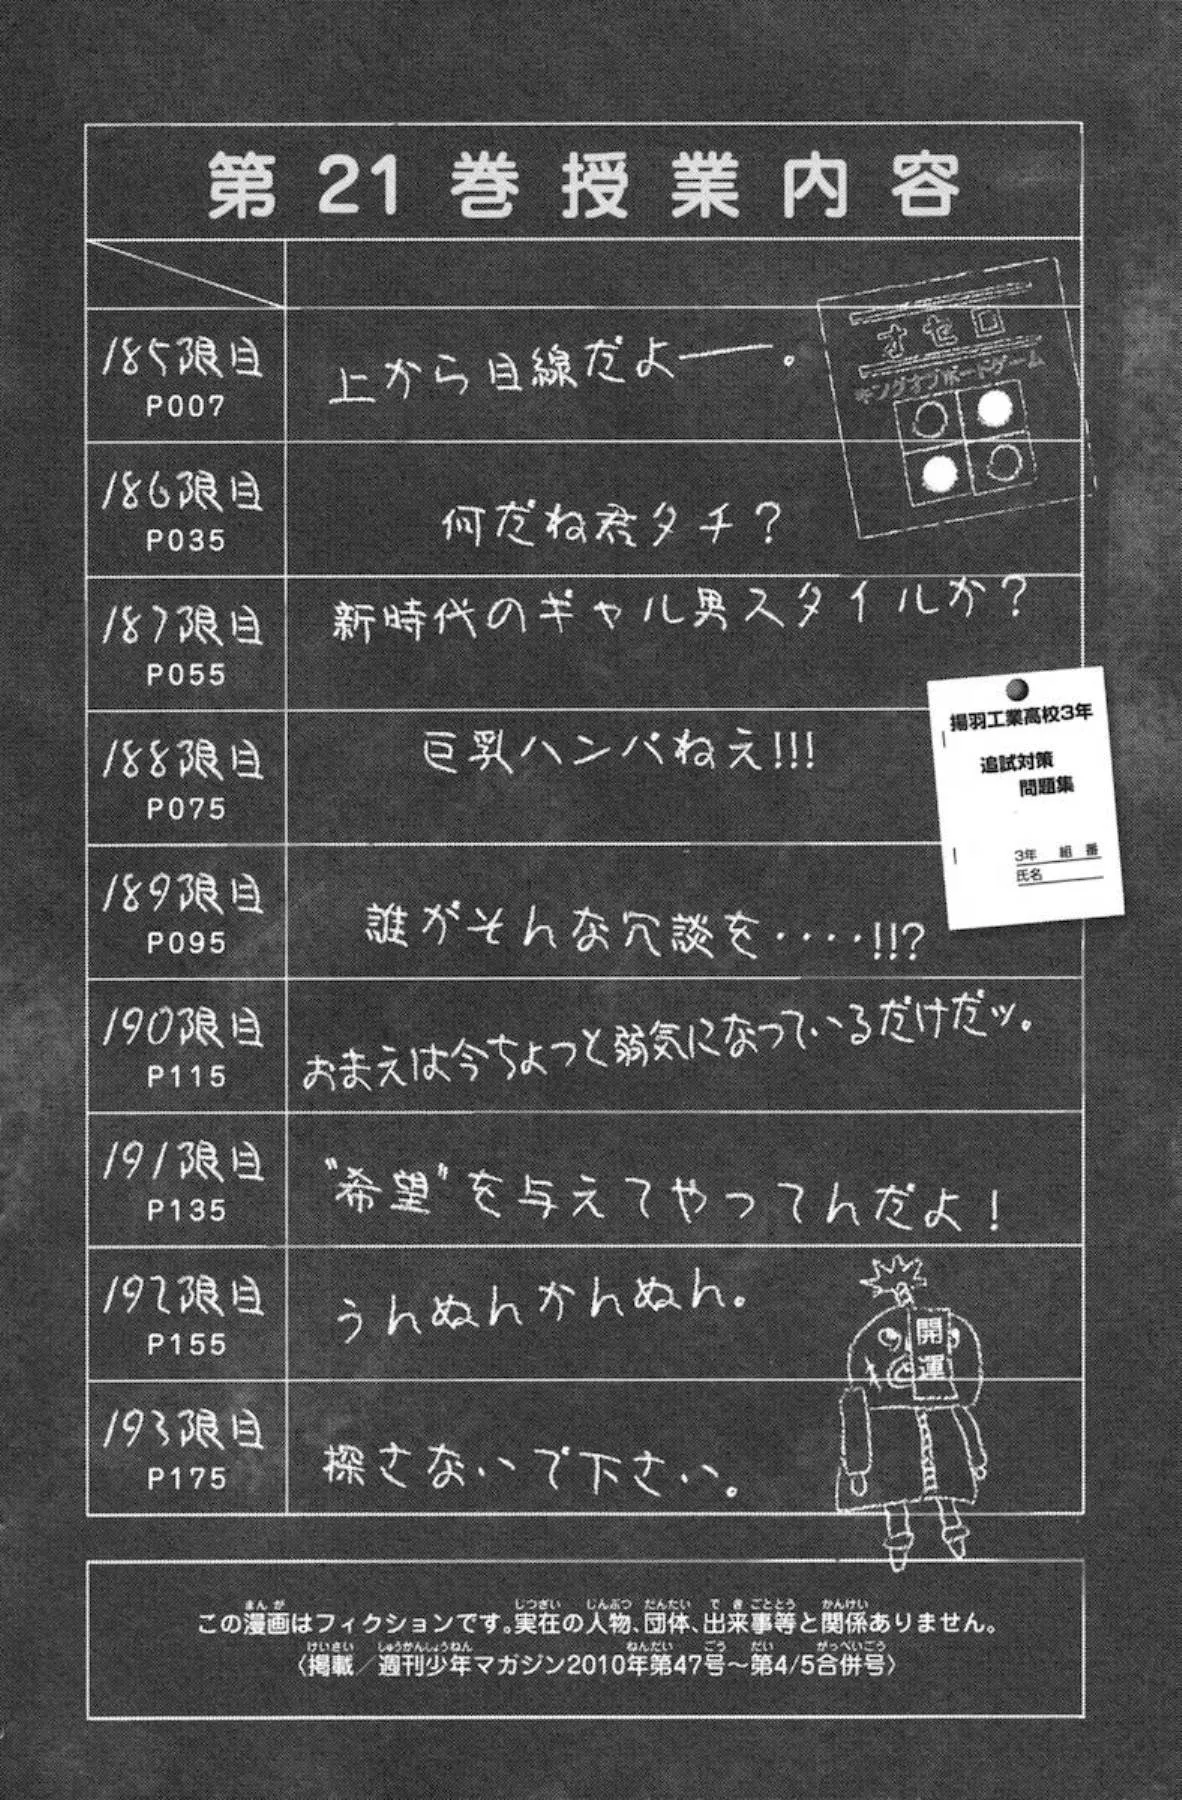 第21巻授業内容
オセロ
キングオブボードゲーム
185限目
P007
上から目線だよ──。
186限目
P035
何だね君タチ？
187限目
P055
新時代のギャル男スタイルか？
188限目
P075
巨乳ハンパねえ!!!
揚羽工業高校3年
追試対策
問題集
3年 組 番
氏名
189限目
P095
誰がそんな冗談を・・・・!!?
190限目
P115
おまえは今ちょっと弱気になっているだけだッ。
191限目
P135
"希望"を与えてやってんだよ！
192限目
P155
うんぬんかんぬん。
開運
193限目
P175
探さないで下さい。
まんが じつざい じんぶつ だんたい できごととう かんけい
この漫画はフィクションです。実在の人物、団体、出来事等と関係ありません。
けいさい しゅうかんしょうねん ねんだい ごう だい がっぺいごう
〈掲載／週刊少年マガジン2010年第47号〜第4/5合併号〉